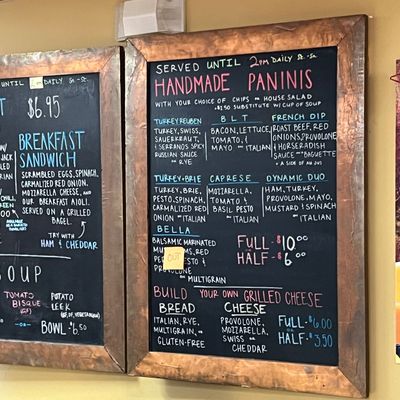 DAILY
$6.95
BREAKFAST
SANDWICH
SCRAMBLED EGGS, SPINACH,
CARMALIZED RED ONION,
MOZZARELLA CHEESE, AND
OUR BREAKFAST AIOLI.
SERVED ON A GRILLED
BAGEL
TRY WITH
HAM & CHEDDAR
SOUP
TOMATO
BISQUE
-OR-
POTATO
LEEK
BOWL $6.50
SERVED UNTIL 2PM DAILY
HANDMADE PANINIS
WITH YOUR CHOICE OF CHIPS OR HOUSE SALAD
$1.50 SUBSTITUTE W/ CUP OF SOUP
TURKEY REUBEN
TURKEY, SWISS,
SAUERKRAUT,
& SERRANO SPICY
RUSSIAN SAUCE
RYE
BLT
BACON, LETTUCE,
TOMATO, &
MAYO ITALIAN
FRENCH DIP
ROAST BEEF, RED
ONIONS, PROVOLONE
& HORSERADISH
SAUCE BAGUETTE
+ A SIDE OF AU JUS
TURKEY-BRIE
TURKEY, BRIE,
PESTO, SPINACH,
CARMALIZED RED
ONION ITALIAN
CAPRESE
MOZZARELLA,
TOMATO &
BASIL PESTO
ITALIAN
DYNAMIC DUO
HAM, TURKEY,
PROVOLONE, MAYO,
MUSTARD & SPINACH
ITALIAN
BELLA
BALSAMIC MARINATED
MUSHROOMS, RED
PEPPER PESTO &
PROVOLONE
MULTIGRAIN
OUT
FULL - $10.00
HALF - $6.00
BUILD YOUR OWN GRILLED CHEESE
BREAD
ITALIAN, RYE,
MULTIGRAIN OR
GLUTEN-FREE
CHEESE
PROVOLONE,
MOZZARELLA,
SWISS OR
CHEDDAR
FULL - $6.00
OR
HALF - $3.50